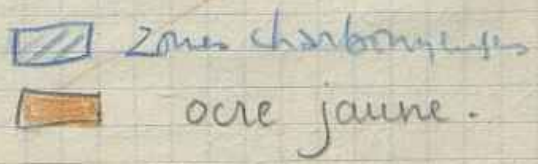 Zones charbonneuses
ocre jaune.